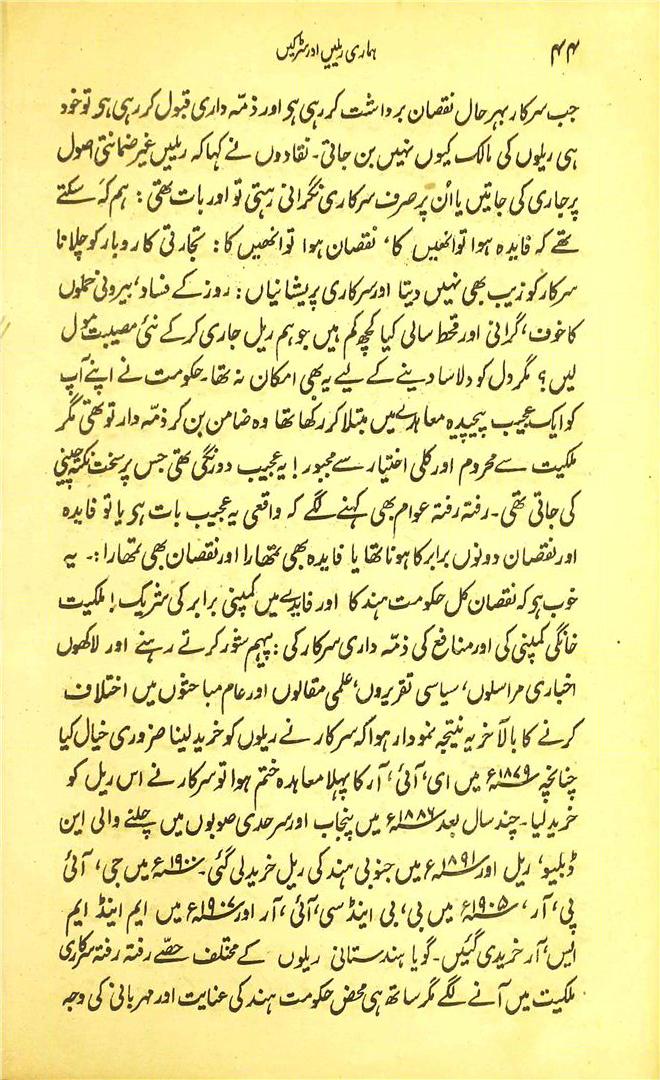 ۴۴ ہماری ریلیں اور سڑکیں
جب سرکار بہر حال نقصان برداشت کر رہی ہو اور ذمّہ داری قبول کر رہی ہو تو خود
ہی ریلوں کی مالک کیوں نہیں بن جاتی۔ نقادوں نے کہا کہ ریلیں غیر ضمانتی اصول
پر جاری کی جاتیں یا اُن پر صرف سرکاری نگرانی رہتی تو اور بات تھی: ہم کہ سکتے
تھے کہ فایدہ ہوا تو انھیں کا، نقصان ہوا تو انھیں کا: تجارتی کاروبار کو چلانا
سرکار کو زیب بھی نہیں دیتا اور سرکاری پریشانیاں: روز کے فساد، بیرونی حملوں
کا خوف، گرانی اور قحط سالی کیا کچھ کم ہیں جو ہم ریل جاری کرکے نئی مصیبت مول
لیں؟ مگر دل کو دلاسا دینے کے لیے یہ بھی امکان نہ تھا۔ حکومت نے اپنے آپ
کو ایک عجیب پیچیدہ معاہدے میں مبتلا کر رکھا تھا وہ ضامن بن کر ذمّہ دار تو تھی مگر
ملکیت سے محروم اور کلی اختیار سے مجبور! یہ عجیب دورنگی تھی جس پر سخت نکتہ چینی
کی جاتی تھی۔ رفتہ رفتہ عوام بھی کہنے لگے کہ واقعی یہ عجیب بات ہو یا تو فایدہ
اور نقصان دونوں برابر کا ہونا تھا یا فایدہ بھی تمھارا اور نقصان بھی تمھارا:۔ یہ
خوب ہو کہ نقصان کل حکومت ہند کا اور فایدے میں کمپنی برابر کی شریک! ملکیت
خانگی کمپنی کی اور منافع کی ذمّہ داری سرکار کی: پیہم شور کرتے رہنے اور لاکھوں
اخباری مراسلوں، سیاسی تقریروں، علمی مقالوں اور عام مباحثوں میں اختلاف
کرنے کا بالآخر یہ نتیجہ نمودار ہوا کہ سرکار نے ریلوں کو خرید لینا ضروری خیال کیا
چنانچہ ۱۸۷۹ء میں ای، آئی، آر کا پہلا معاہدہ ختم ہوا تو سرکار نے اس ریل کو
خرید لیا۔ چند سال بعد ۱۸۸۶ء میں پنجاب اور سرحدی صوبوں میں چلنے والی این
ڈبلیو، ریل اور ۱۸۹۱ء میں جنوبی ہند کی ریل خرید لی گئی۔ ۱۹۰۰ء میں جی، آئی
پی، آر، ۱۹۰۵ء میں بی، بی اینڈ سی، آئی، آر اور ۱۹۰۷ء میں ایم اینڈ ایم
ایس، آر خریدی گئیں۔ گویا ہندستانی ریلوں کے مختلف حصّے رفتہ رفتہ سرکاری
ملکیت میں آنے لگے مگر ساتھ ہی محض حکومت ہند کی عنایت اور مہربانی کی وجہ